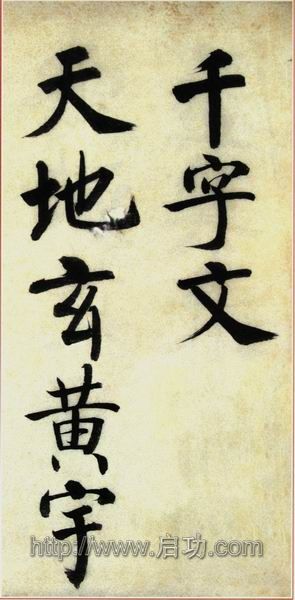 千字文
天地玄黄宇
http://www.启功.com